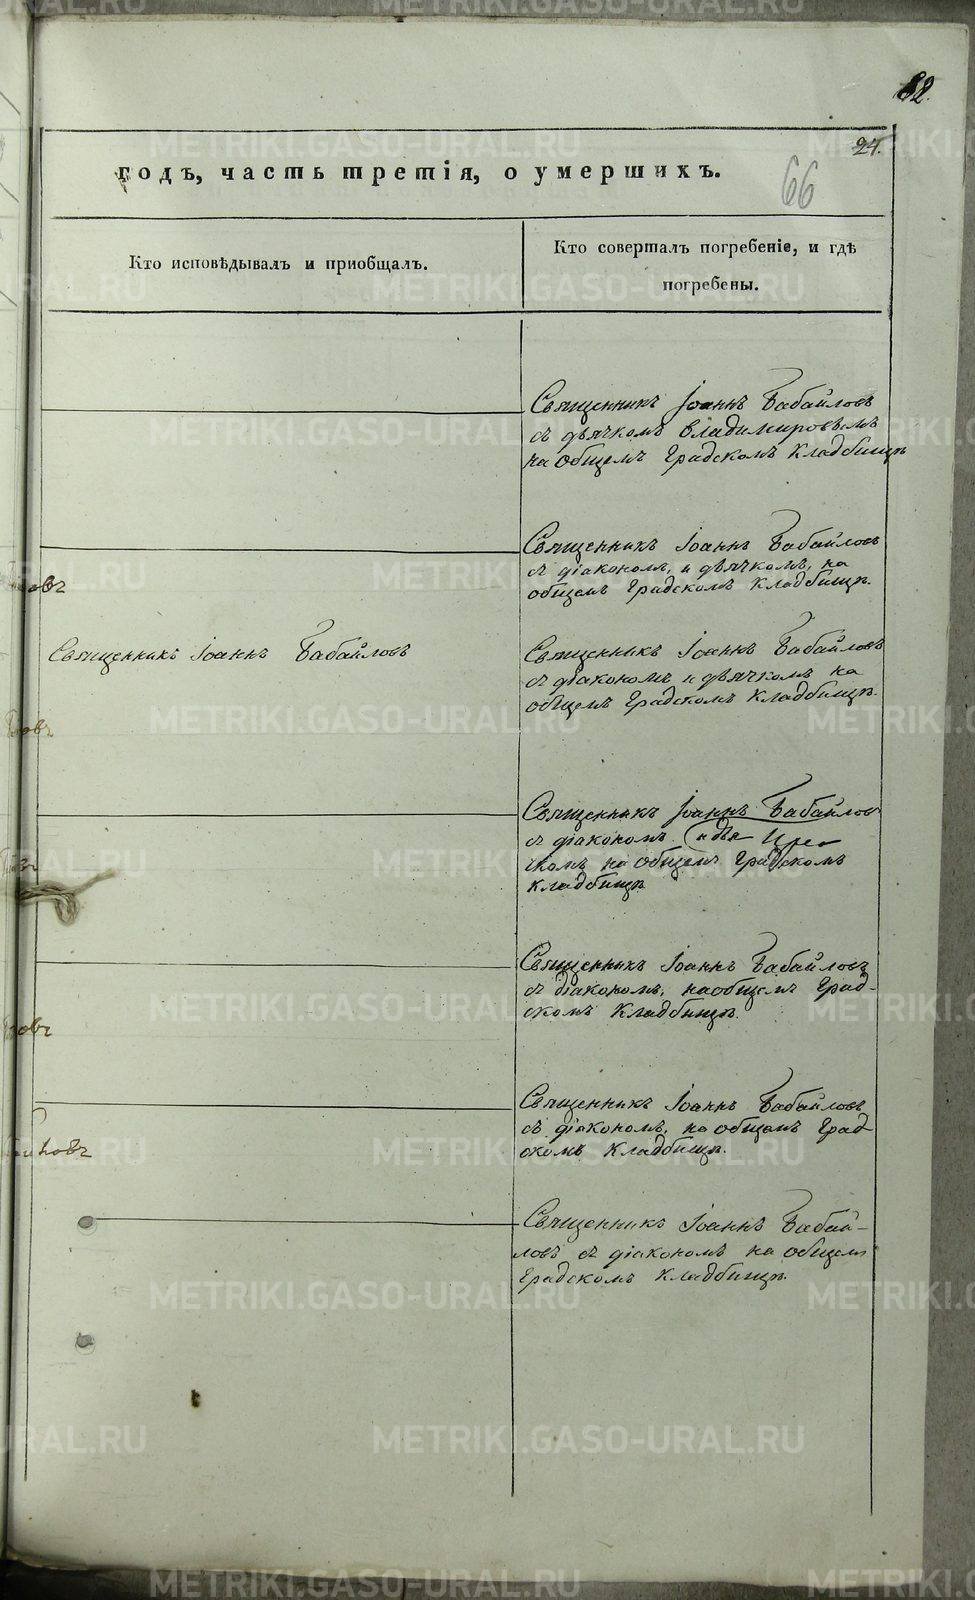 82.
24.
годъ, часть третія, о умершихъ.
66
Кто исповѣдывалъ и приобщалъ.
Кто совершалъ погребеніе, и гдѣ
погребены.
Священникъ Іоаннъ Бабайловъ
съ дьячкомъ Владимировымъ
на общемъ Градскомъ Кладбищѣ
Священникъ Іоаннъ Бабайловъ
съ діакономъ, и дьячкомъ, на
общемъ Градскомъ Кладбищѣ.
Священникъ Іоаннъ Бабайловъ
Священникъ Іоаннъ Бабайловъ
съ діакономъ и дьячкомъ на
общемъ Градскомъ Кладбищѣ.
Священникъ Іоаннъ Бабайловъ
съ діакономъ и дья
чкомъ на общемъ Градскомъ
Кладбищѣ
Священникъ Іоаннъ Бабайловъ
съ діакономъ, на общемъ Град-
скомъ Кладбищѣ.
Священникъ Іоаннъ Бабайловъ
съ діакономъ, на общемъ Град
скомъ Кладбищѣ.
Священникъ Іоаннъ Бабай-
ловъ съ діакономъ на общемъ
Градскомъ Кладбищѣ.
METRIKI.GASO-URAL.RU